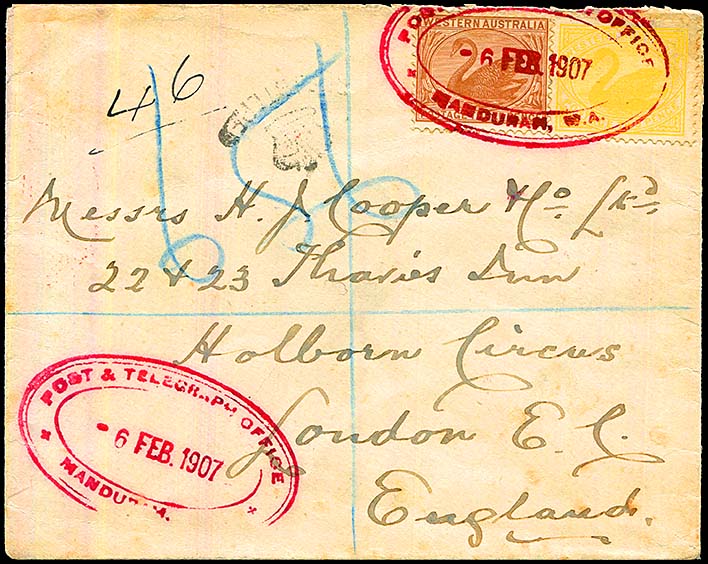 WESTERN AUSTRALIA
POST OFFICE
- 6 FEB. 1907
MANDURAH, W.A.
POSTAGE
46
Messrs H. J. Cooper & Co. Ltd.
22 & 23 Thavies Inn
Holborn Circus
London E. C.
England.
POST & TELEGRAPH OFFICE
- 6 FEB. 1907
MANDURAH.